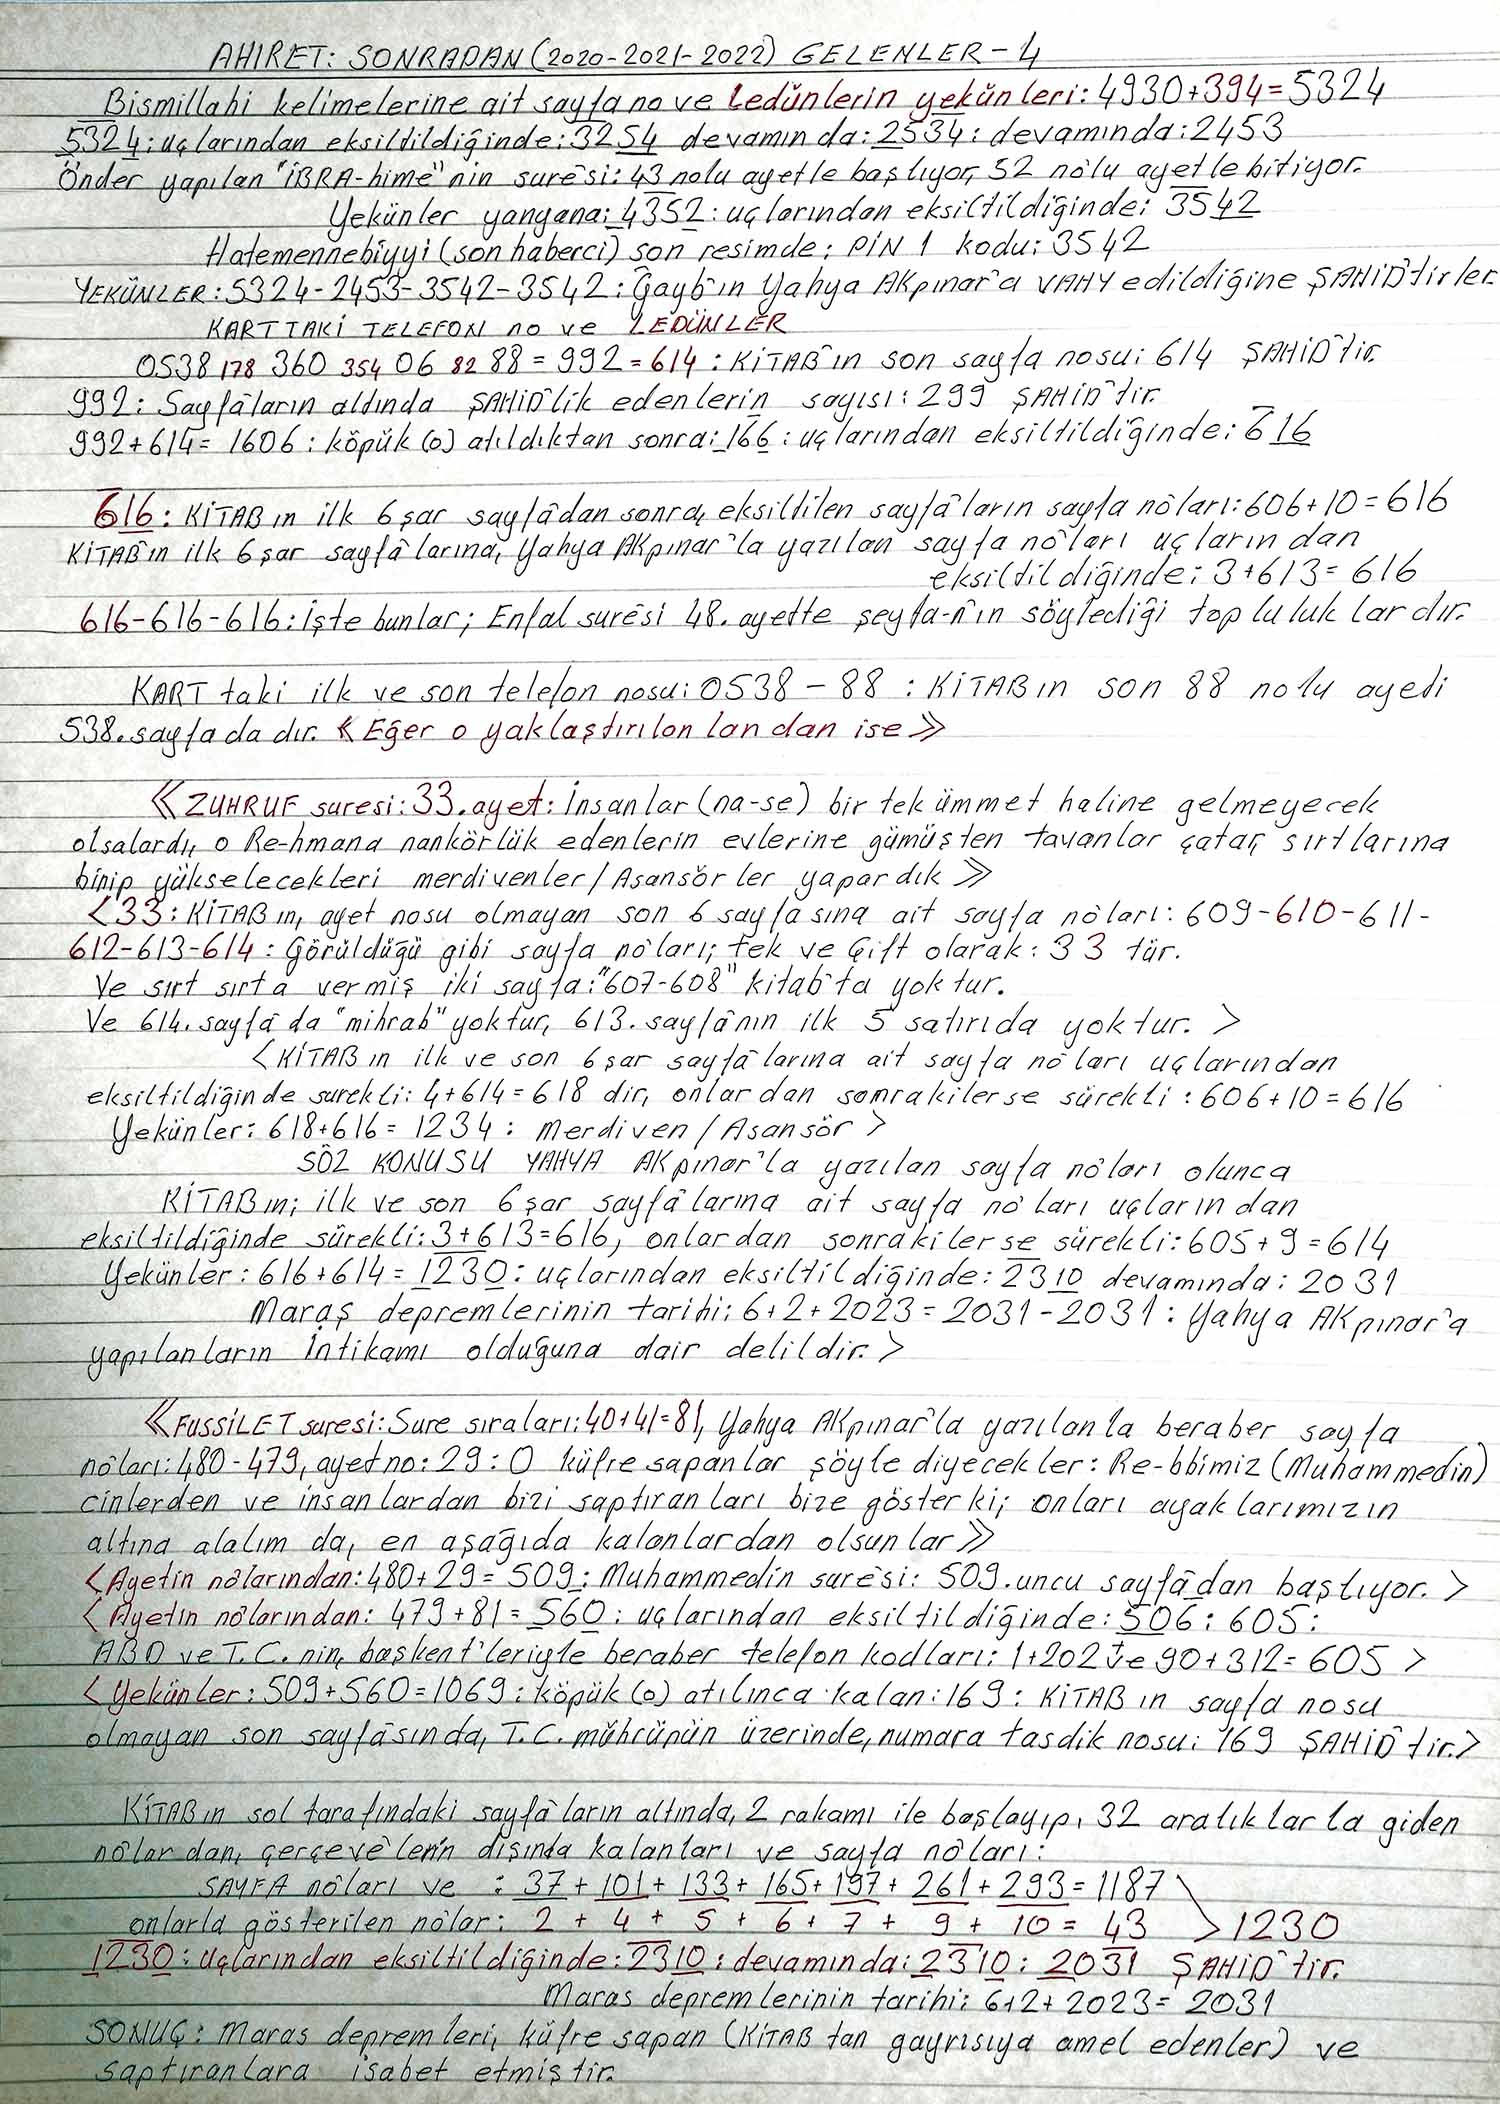 AHIRET: SONRADAN (2020-2021-2022) GELENLER - 4
Bismillahi kelimelerine ait sayfa no ve Ledünlerin yekünleri: 4930+394=5324
5324: uçlarından eksiltildiğinde: 3254 devamında: 2534: devamında: 2453
Önder yapılan "İBRA-hime"nin suresi: 43 nolu ayetle başlıyor, 52 nolu ayetle bitiyor.
Yekünler yanyana: 4352: uçlarından eksiltildiğinde: 3542
Hatemennebiyyi (son haberci) son resimde: PİN 1 kodu: 3542
YEKÜNLER: 5324-2453-3542-3542: Gayb'ın Yahya AKpınar'a VAHY edildiğine ŞAHİD'tirler.
KARTTAKİ TELEFON no ve LEDÜNLER
0538 178 360 354 06 82 88 = 992 = 614 : KİTAB'ın son sayfa nosu: 614 ŞAHİD'tir.
992: Sayfâların altında ŞAHİD'lik edenlerin sayısı: 299 ŞAHİD'tir.
992+614= 1606: köpük (o) atıldıktan sonra: 166: uçlarından eksiltildiğinde: 616
616: KİTABın ilk 6şar sayfâdan sonra, eksiltilen sayfâların sayfa nôları: 606+10=616
KİTAB'ın ilk 6şar sayfâlarına, Yahya AKpınar'la yazılan sayfa nôları uçlarından
eksiltildiğinde: 3+613= 616
616-616-616: İşte bunlar; Enfal suresi 48. ayette şeyta-n'ın söylediği topluluklardır.
KARTtaki ilk ve son telefon nosu: 0538 - 88 : KİTABın son 88 nolu ayeti
538. sayfadadır. « Eğer o yaklaştırılanlandan ise »
« ZUHRUF suresi: 33. ayet: İnsanlar (na-se) bir tek ümmet haline gelmeyecek
olsalardı, o Re-hmana nankörlük edenlerin evlerine gümüşten tavanlar çatar, sırtlarına
binip yükselecekleri merdivenler/Asansörler yapardık »
< 33: KİTABın, ayet nosu olmayan son 6 sayfasına ait sayfa nôları: 609-610-611-
612-613-614: Görüldüğü gibi sayfa nôları; tek ve Çift olarak: 33 tür.
Ve sırt sırta vermiş iki sayfa: "607-608" kitab'ta yoktur.
Ve 614. sayfâda "mihrab" yoktur, 613. sayfânın ilk 5 satırıda yoktur. >
< KİTABın ilk ve son 6şar sayfâlarına ait sayfa nôları uçlarından
eksiltildiğinde sürekli: 4+614=618 dir, onlardan sonrakilerse sürekli: 606+10=616
Yekünler: 618+616= 1234: Merdiven/Asansör >
SÖZ KONUSU YAHYA AKpınar'la yazılan sayfa nôları olunca
KİTABın; ilk ve son 6şar sayfâlarına ait sayfa nôları uçlarından
eksiltildiğinde sürekli: 3+613=616, onlardan sonrakilerse sürekli: 605+9=614
Yekünler: 616+614= 1230: uçlarından eksiltildiğinde: 2310 devamında: 2031
Maraş depremlerinin tarihi: 6+2+2023=2031-2031: Yahya AKpınar'a
yapılanların İntikamı olduğuna dair delildir. >
« FUSSİLET suresi: Sure sıraları: 40+41=81, Yahya AKpınar'la yazılanla beraber sayfa
nôları: 480-479, ayet no: 29: O küfre sapanlar şöyle diyecekler: Re-bbimiz (Muhammedin)
cinlerden ve insanlardan bizi saptıranları bize göster ki; onları ayaklarımızın
altına alalım da, en aşağıda kalanlardan olsunlar »
< Ayetin nôlarından: 480+29= 509: Muhammedin suresi: 509.uncu sayfâdan başlıyor. >
< Ayetin nôlarından: 479+81= 560: uçlarından eksiltildiğinde: 506: 605:
ABD ve T.C. nin, başkent'leriyle beraber telefon kodları: 1+202 ve 90+312= 605 >
< Yekünler: 509+560=1069: köpük (o) atılınca kalan: 169: KİTABın sayfa nosu
olmayan son sayfâsında, T.C. mührünün üzerinde, numara tasdik nosu: 169 ŞAHİD'tir. >
KİTABın sol tarafındaki sayfâların altında, 2 rakamı ile başlayıp, 32 aralıklarla giden
nôlardan, çerçeve'lerin dışında kalanları ve sayfa nôları:
SAYFA nôları ve : 37 + 101 + 133 + 165 + 197 + 261 + 293 = 1187
onlarla gösterilen nôlar: 2 + 4 + 5 + 6 + 7 + 9 + 10 = 43 > 1230
1230: uçlarından eksiltildiğinde: 2310: devamında: 2310: 2031 ŞAHİD'tir.
Maraş depremlerinin tarihi: 6+2+2023= 2031
SONUÇ: Maraş depremleri, küfre sapan (KİTAB'tan gayrısıya amel edenler) ve
saptıranlara isabet etmiştir.